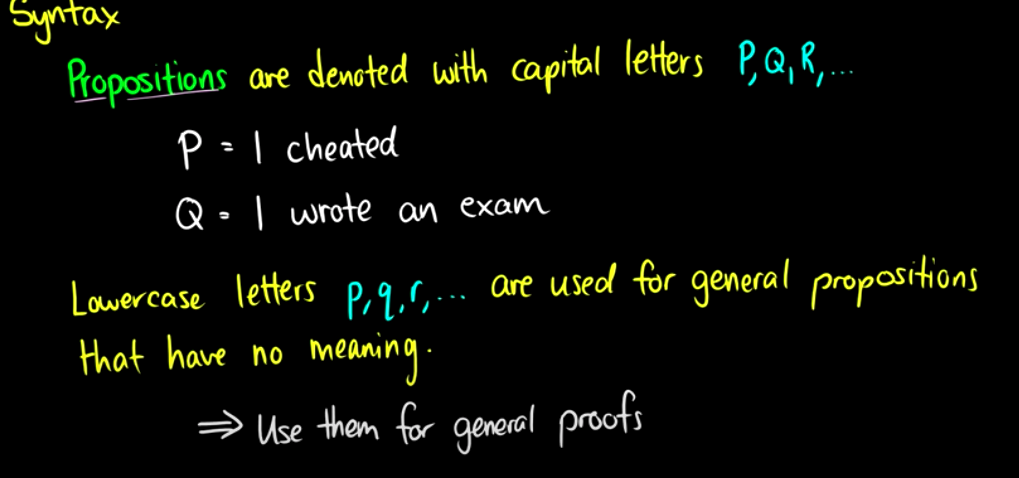 Syntax
Propositions are denoted with capital letters P, Q, R, ...
P = I cheated
Q = I wrote an exam
Lowercase letters p, q, r, ... are used for general propositions
that have no meaning.
⇒ Use them for general proofs